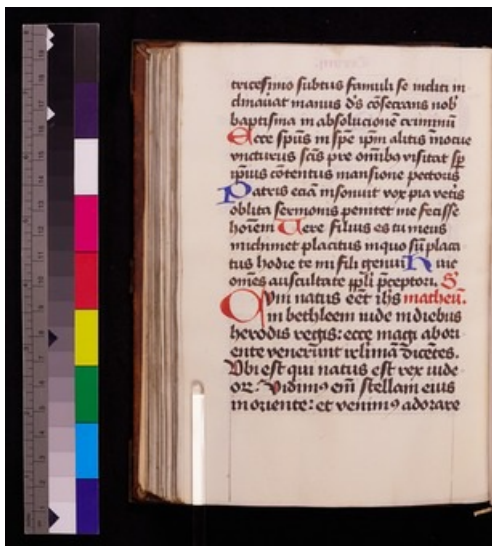 tricesimo subtus famuli se incliti in
clinauat manus ds cōsecrans nob
baptisma in absolucionē criminū
Ecce spūs in spē ipm alitis innocue
vncturus scīs pre omībꝯ visitat sp
ipius cōtentus mansione pectoris
Patris eciā insonuit vox pia vetis
oblita sermonis penitet me fecisse
hoīem Vere filius es tu meus
michimet placitus in quo sū placa
tus hodie te mi fili genui Huic
omēs auscultate ppli pceptori. S
Qvm natus eēt ihs matheū.
in bethleem iude in diebus
herodis regis: ecce magi abori
ente venerunt irlimā dicētes.
Vbi est qui natus est rex iude
oꝝ: Vidimꝯ eñ stellam eius
in oriente: et venimꝯ adorare